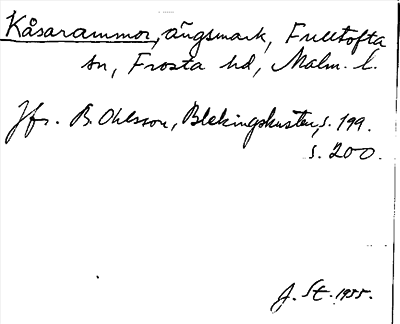 Kåsarammor, ängsmark, Fulltofta
sn, Frosta hd, Malm. l.
Jfr. B. Ohlsson, Blekingskusten, s. 199.
s. 200.
J. St. 1955.